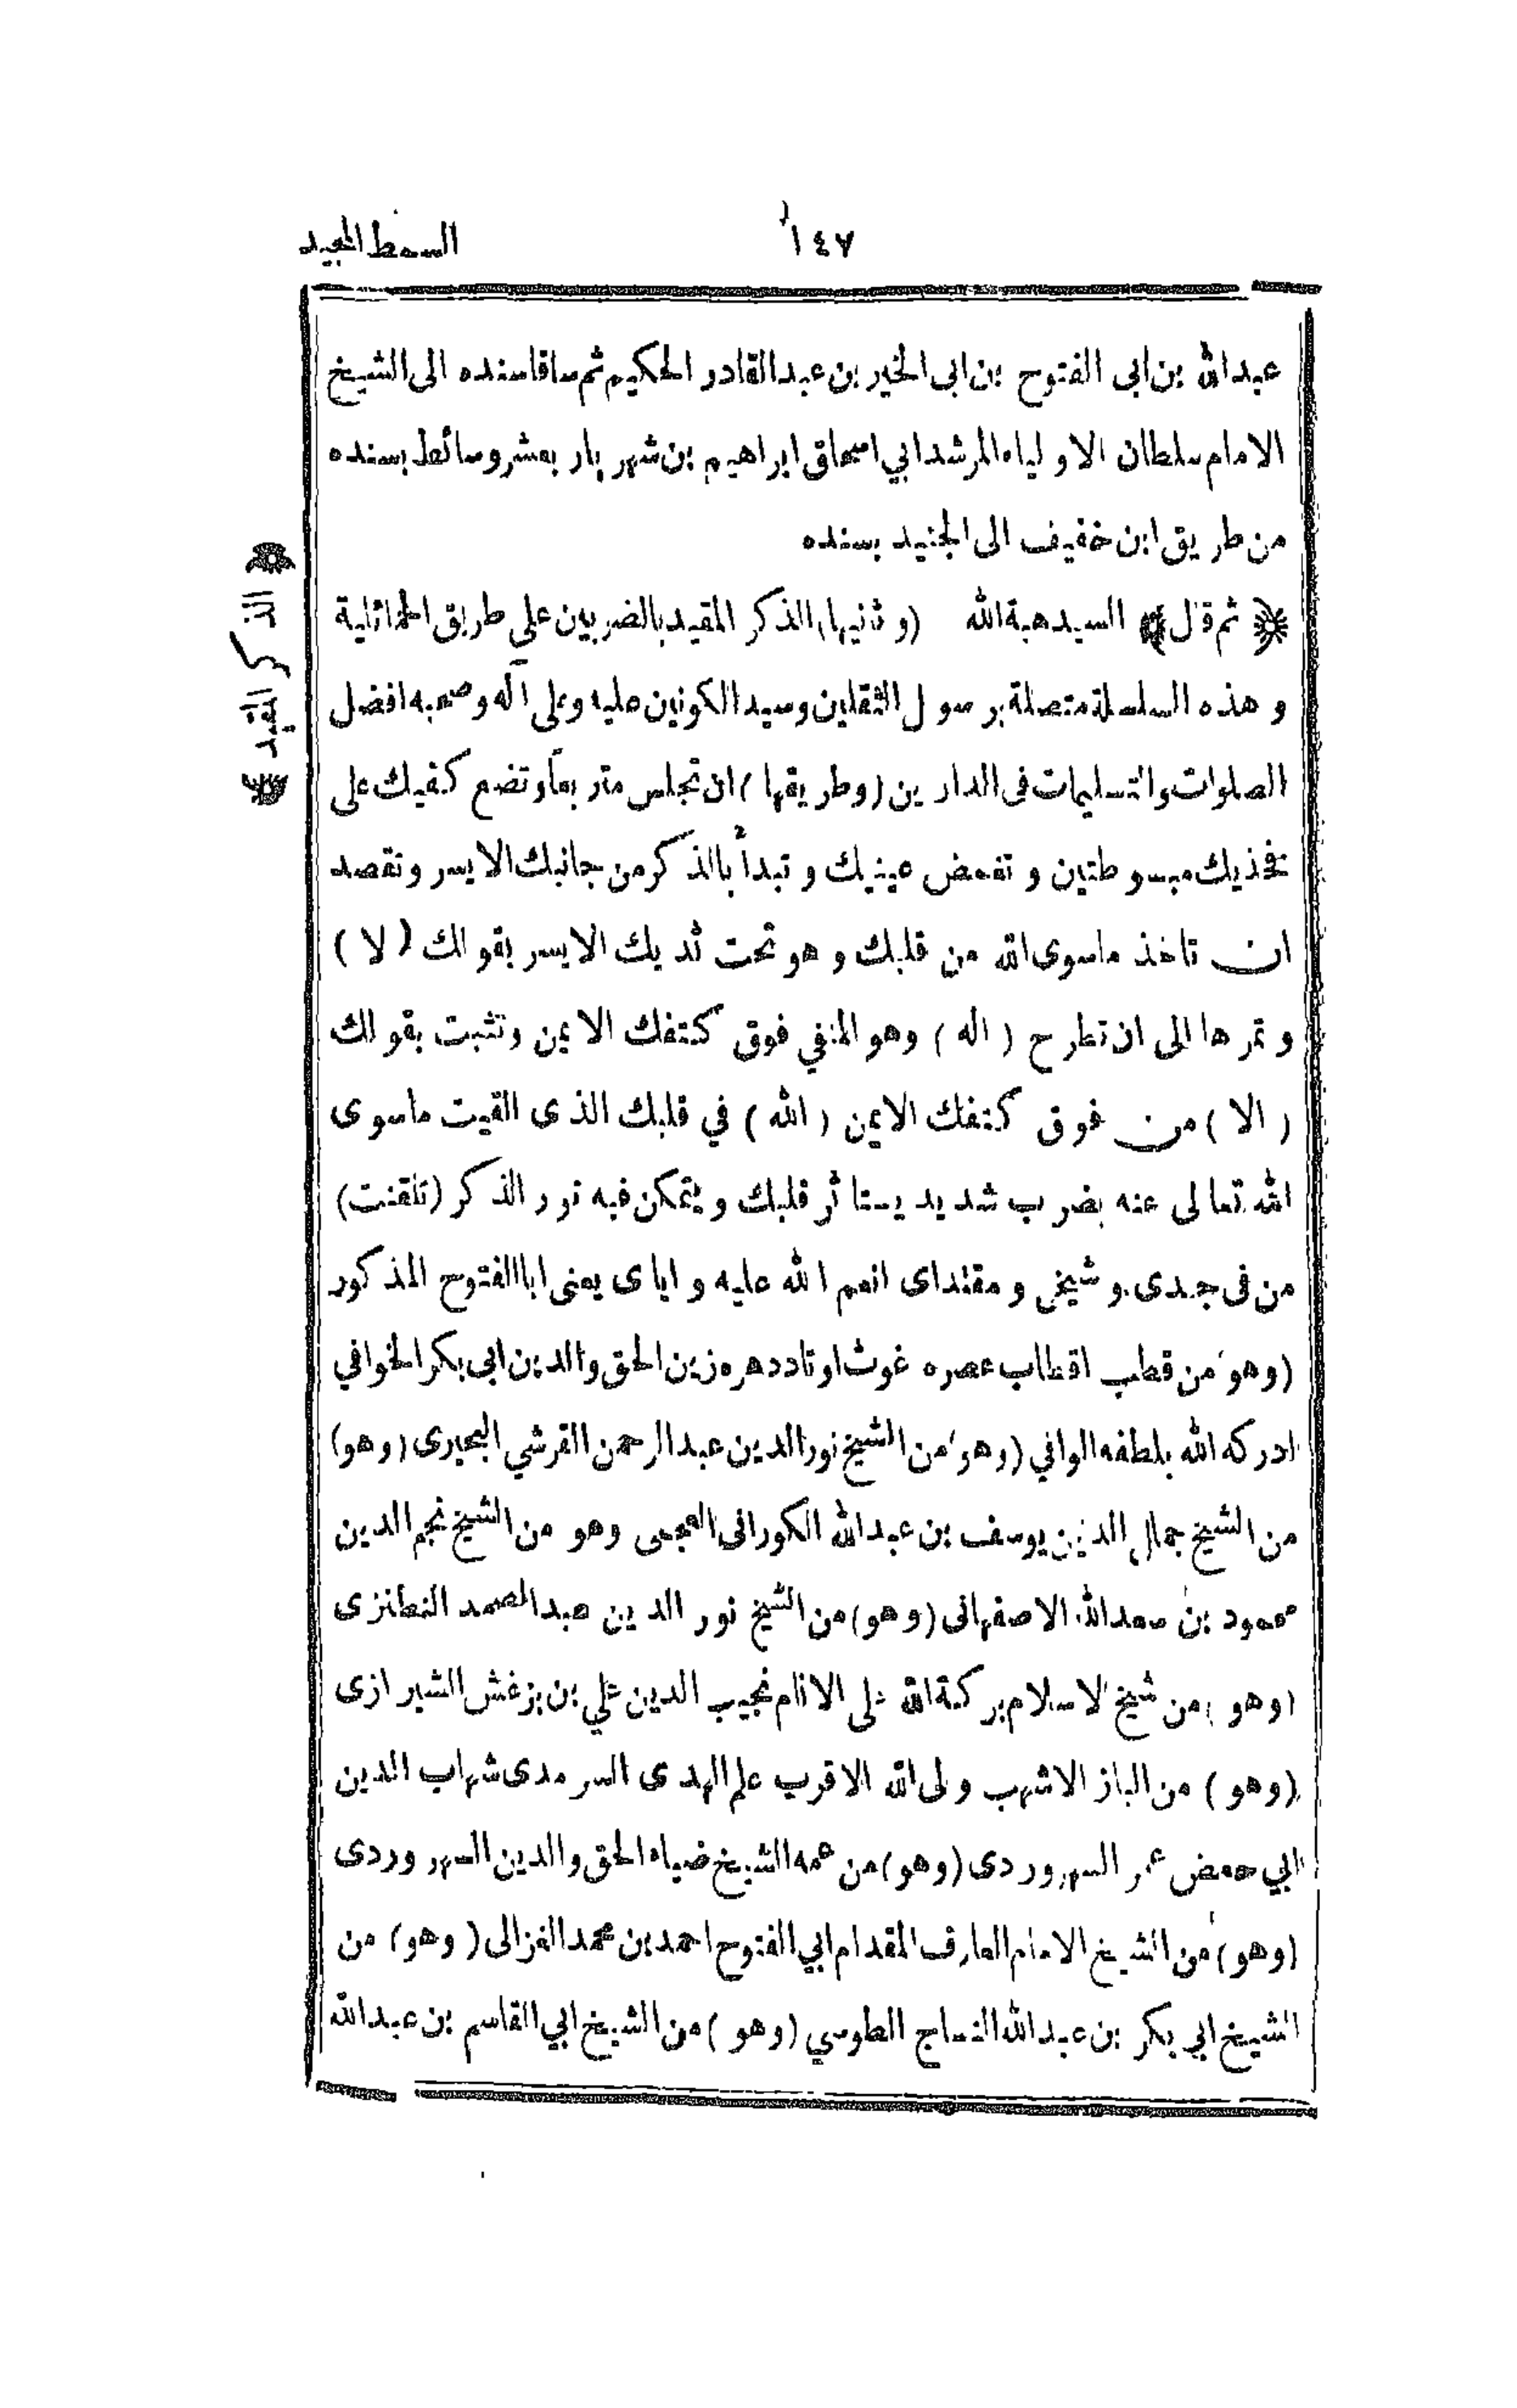 ١٤٧ السمط المجيد
عبدالله بن ابى الفتوح بن ابى الخير بن عبدالقادر الحكيم ثم ساقا سنده الى الشيخ
الامام سلطان الاولياء المرشد ابي اسحاق ابراهيم بن شهريار بعشر وسائط بسنده
من طريق ابن خفيف الى الجنيد بسنده
﴿ ثم قال ﴾ السيد هبة الله (وثانيها) الذكر المقيد بالضربين على طريق الحمائلية
وهذه السلسلة متصلة برسول الثقلين وسيد الكونين عليه وعلى آله وصحبه افضل
الصلوات والتسليمات فى الدارين (وطريقها) ان تجلس متربعاً وتضع كفيك على
فخذيك مبسوطتين وتغمض عينيك وتبدأ بالذكر من جانبك الايسر وتقصد
ان تاخذ ماسوى الله من قلبك وهو تحت ثديك الايسر بقولك (لا)
وتمرها الى ان تطرح (اله) وهو المنفي فوق كتفك الايمن وتثبت بقولك
(الا) من فوق كتفك الايمن (الله) في قلبك الذى القيت ماسوى
الله تعالى عنه بضرب شديد يستاثر قلبك ويتمكن فيه نور الذكر (تلقنت)
من فى جدى وشيخى ومقتداى انعم الله عليه واياى يعنى اباالفتوح المذكور
(وهو) من قطب اقطاب عصره غوث اوتاد دهره زين الحق والدين ابى بكر الخوافي
ادركه الله بلطفه الوافي (وهو) من الشيخ نورالدين عبدالرحمن القرشي البحيرى (وهو)
من الشيخ جمال الدين يوسف بن عبدالله الكورانى العجمى وهو من الشيخ نجم الدين
محمود بن سعدالله الاصفهانى (وهو) من الشيخ نور الدين عبدالصمد النطنزى
(وهو) من شيخ الاسلام بركة الله على الانام نجيب الدين علي بن بزغش الشيرازى
(وهو) من الباز الاشهب ولى الله الاقرب علم الهدى السرمدى شهاب الدين
ابي حفص عمر السهروردى (وهو) من عمه الشيخ ضياء الحق والدين السهروردى
(وهو) من الشيخ الامام العارف المقدام ابي الفتوح احمد بن محمد الغزالى (وهو) من
الشيخ ابي بكر بن عبدالله النساج الطوسي (وهو) من الشيخ ابي القاسم بن عبدالله
﴿ الذكر المقيد ﴾